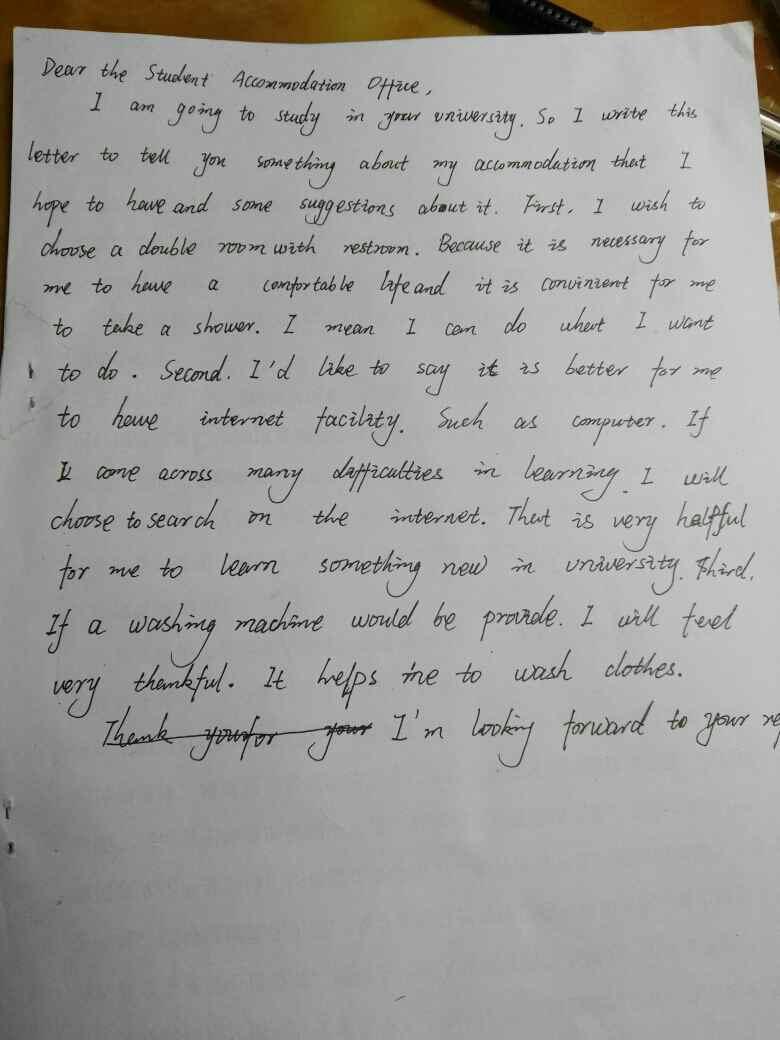 Dear the Student Accommodation Office,
I am going to study in your university. So I write this
letter to tell you something about my accommodation that I
hope to have and some suggestions about it. First, I wish to
choose a double room with restroom. Because it is necessary for
me to have a comfortable life and it is convinient for me
to take a shower. I mean I can do what I want
to do. Second. I'd like to say it is better for me
to have internet facility. Such as computer. If
I come across many difficulties in learning. I will
choose to search on the internet. That is very helpful
for me to learn something new in university. Third.
If a washing machine would be provide. I will feel
very thankful. It helps me to wash clothes.
Thank you for your I'm looking forward to your